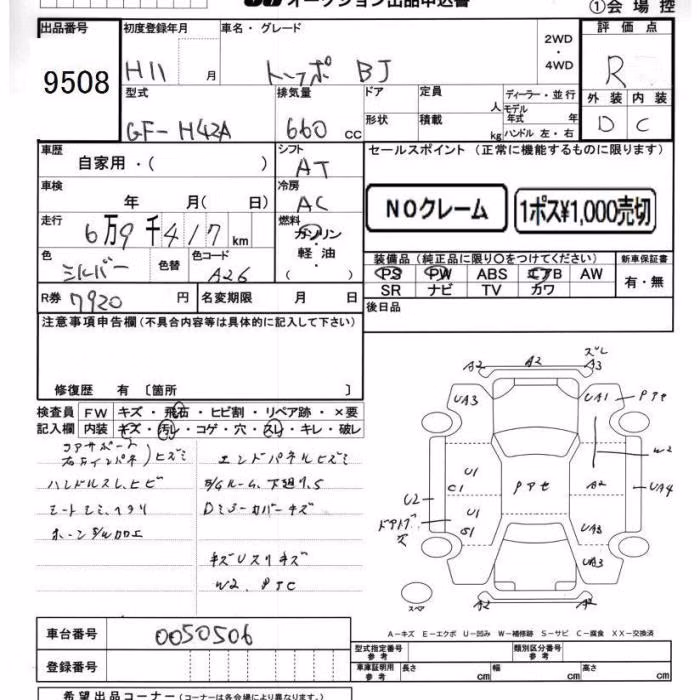 オークション出品申込書
①会場控
出品番号
9508
初度登録年月
H11 月
車名・グレード
トッポ BJ
2WD
・
4WD
評価点
R
型式
GF-H42A
排気量
660 cc
ドア
形状
定員 人
積載 kg
ディーラー・並行
モデル年式 年
ハンドル 左・右
外装 内装
D C
車歴
自家用・( )
シフト
AT
セールスポイント(正常に機能するものに限ります)
NOクレーム
1ポス¥1,000売切
車検
年 月( 日)
冷房
AC
走行
6万9千417 km
燃料
ガソリン
・
軽・油
( )
色
シルバー
色替
色コード
A26
装備品(純正品に限り〇をつけてください)
PS PW ABS エアB AW
SR ナビ TV カワ
新車保証書
有・無
R券 7920 円
名変期限 月 日
後日品
注意事項申告欄(不具合内容等は具体的に記入して下さい)
修復歴 有 〔箇所 〕
検査員 FW キズ・飛石・ヒビ割・リペア跡・×要
記入欄 内装 キズ・汚レ・コゲ・穴・スレ・キレ・破レ
コアサポート
右左インパネ)ヒズミ
ハンドルスレ、ヒビ
シートシミ、ヘタリ
エンドパネルヒズミ
Dミラーカバーキズ
W2、PTC
A2 A2 A3 ズレ
UA3 UA1 PTセ
W2
U1
C1 PPセ A2 UA4
U2
U1
S1 UA3
UA3
A2 A2
スペア
A-キズ E-エクボ U-凹み W-補修跡 S-サビ C-腐食 XX-交換済
車台番号
0050506
登録番号
型式指定番号
参考
類別区分番号
参考
車庫証明用
参考
長さ cm 幅 cm 高さ cm
希望出品コーナー(コーナーは各会場により異なります。)